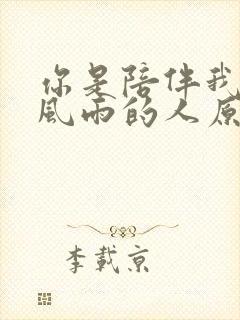 你是陪伴我
风雨的人原
李载京